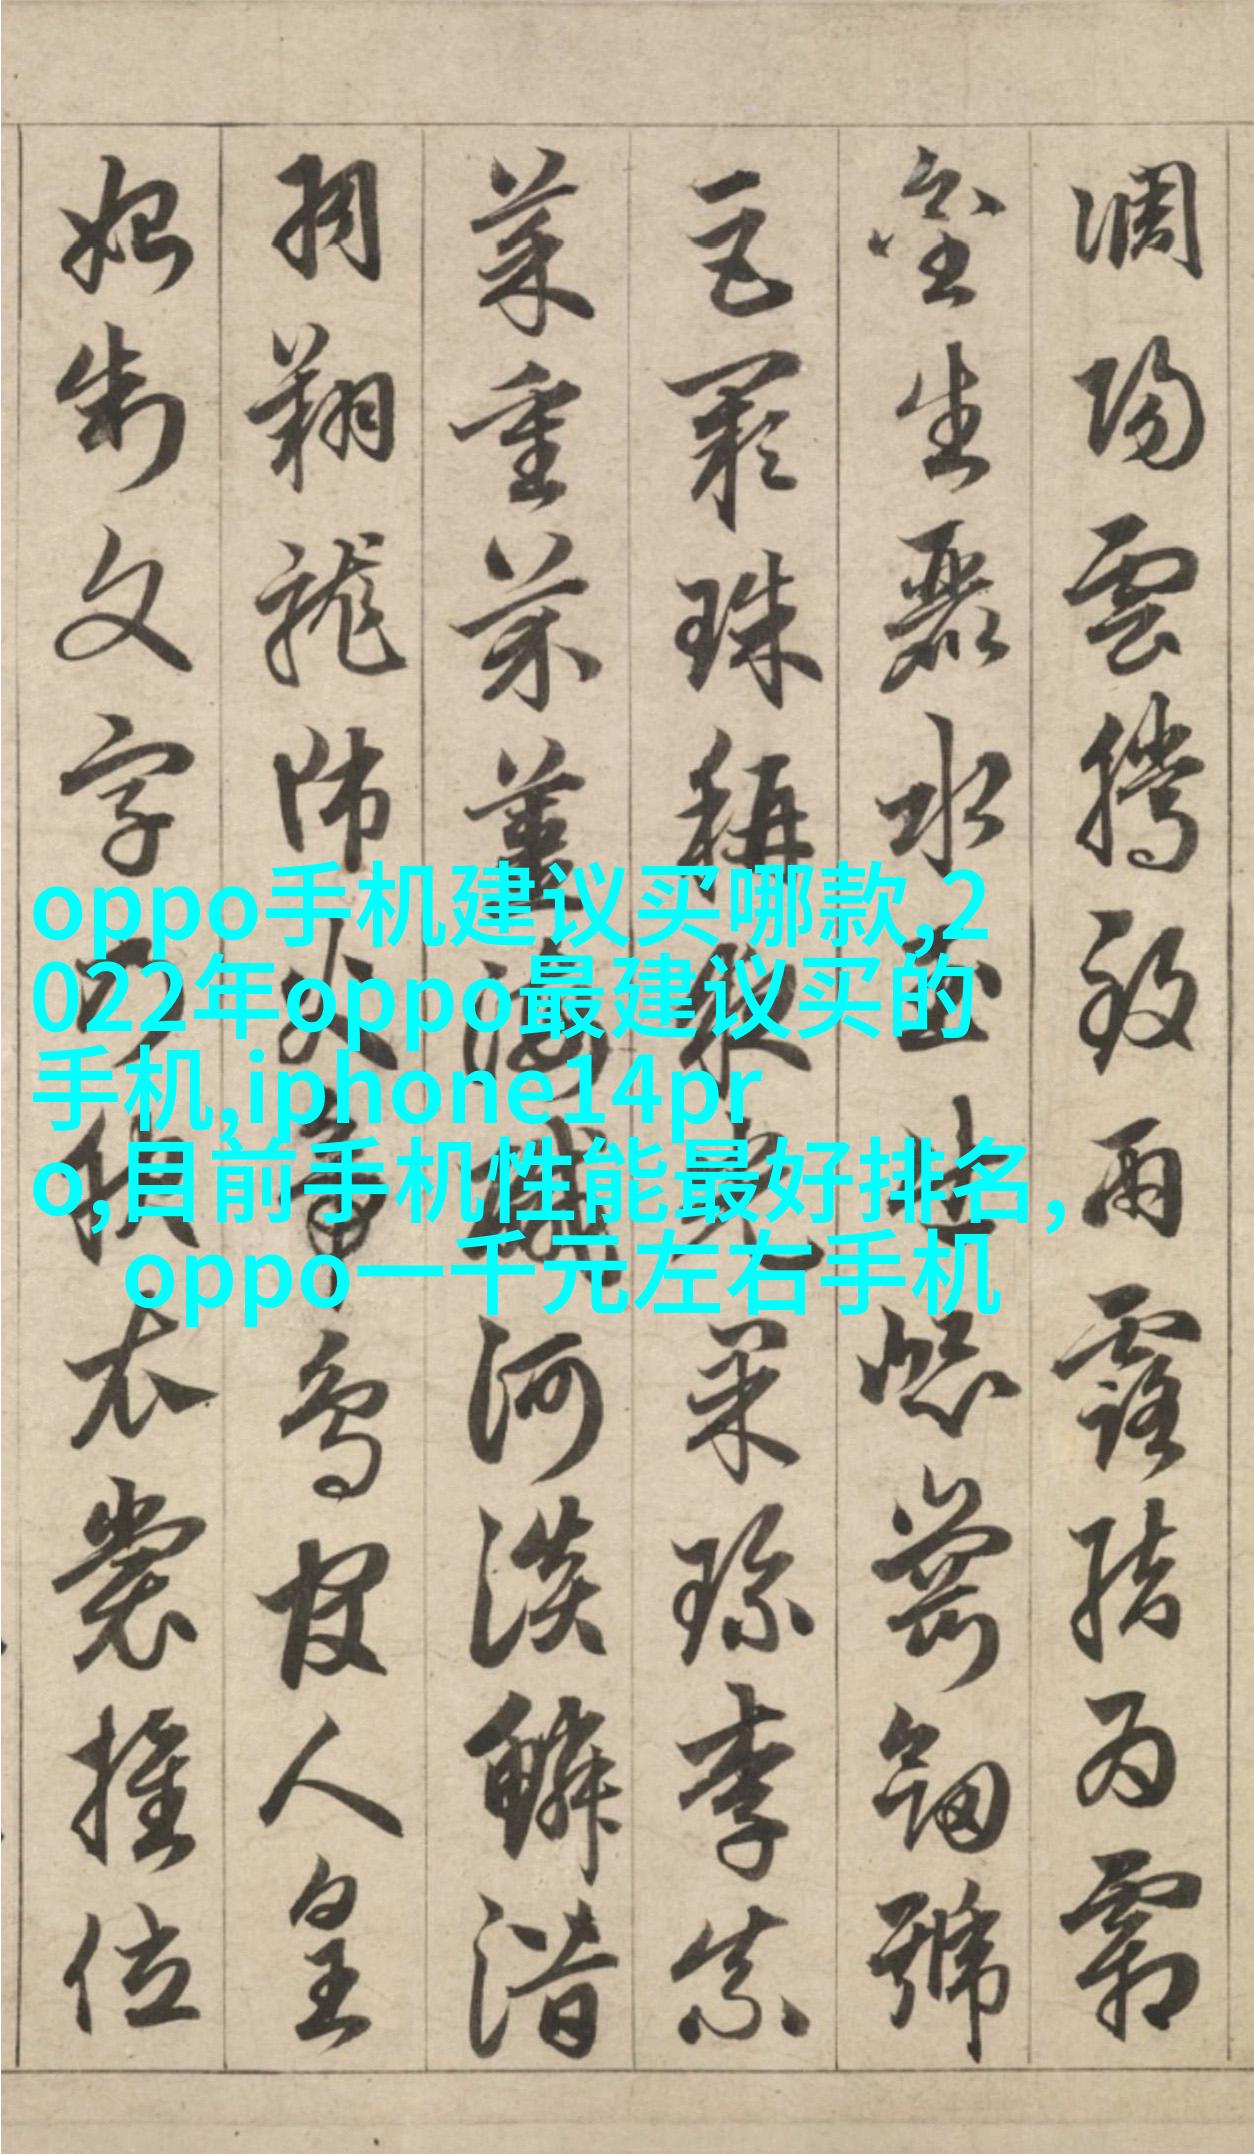 調陽雲騰致雨露結為霜
金生麗水玉出崑崗劍號
巨闕珠稱夜光果珍李柰
菜重芥薑海鹹河淡鱗潛
羽翔龍師火帝鳥官人皇
始制文字乃服衣裳推位
oppo手机建议买哪款,2
022年oppo最建议买的
手机,iphone14pr
o,目前手机性能最好排名,
oppo一千元左右手机